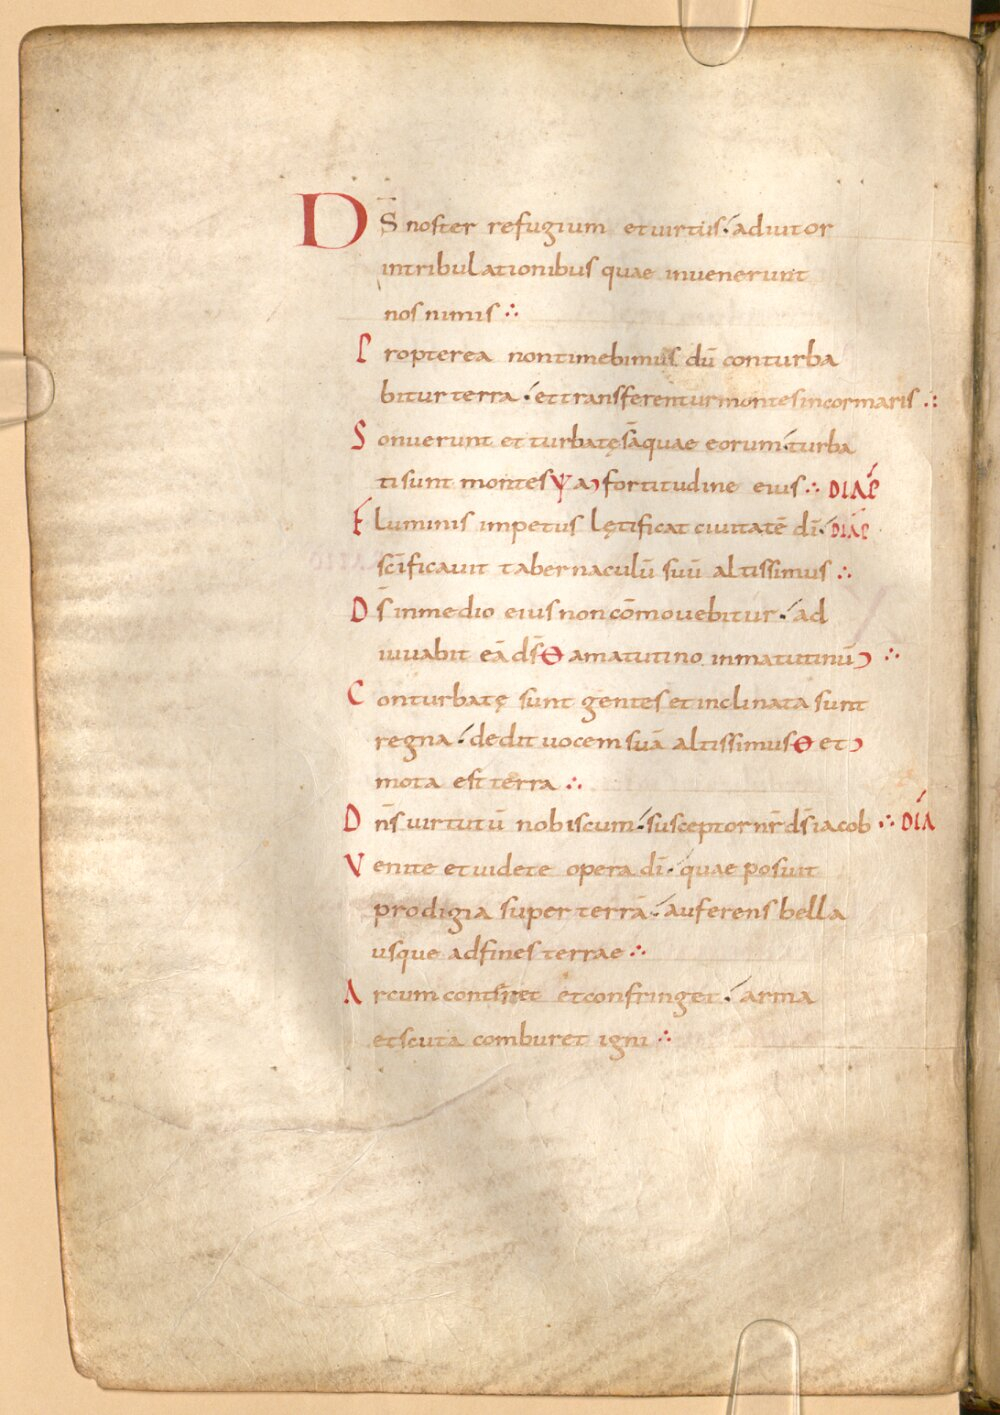 DS̄ noster refugium et uirtus· adiutor
in tribulationibus quae inuenerunt
nos nimis ∴
Propterea non timebimus dū conturba
bitur terra· et transferentur montes in cor maris ∴
Sonuerunt et turbatę sā quae eorum· turba
ti sunt montes ꟺ a) fortitudine eius ∴ DIAP̄
Fluminis impetus lętificat ciuitatē dī· DIAP̄
sc̄ificauit tabernaculū suū altissimus ∴
Ds̄ in medio eius non cōmouebitur· ad
iuuabit eā ds̄ ⊖ a matutino in matutinū) ∴
Conturbatę sunt gentes et inclinata sunt
regna· dedit uocem suā altissimus ⊖ et)
mota est terra ∴
Dn̄s uirtutū nobiscum· susceptor nr̄ ds̄ iacob ∴ DIA
Venite et uidete opera dī· quae posuit
prodigia super terrā· auferens bella
usque ad fines terrae ∴
Arcum conteret et confringet· arma
et scuta comburet igni ∴